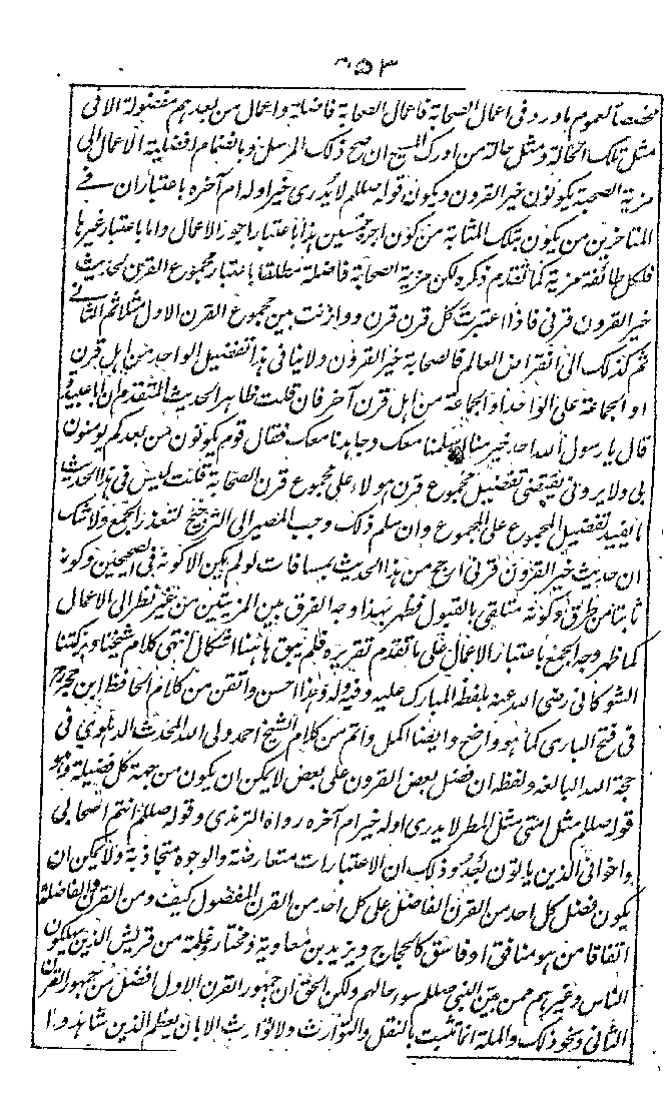 ٣٥٣
مخصصا لعموم ما ورد فى اعمال الصحابة فاعمال الصحابة فاضلة واعمال من بعدهم مفضولة الا فى
مثل تلك الحالة ومثل حالة من ادرك المسيح ان صح ذلك المرسل وبانضمام افضلية الاعمال الى
مزية الصحبة يكونون خير القرون ويكون قوله صللم لا يدرى خير اوله ام آخره باعتبار ان فى
المتاخرين من يكون بتلك المثابة من كون اجره خمسين هذا باعتبار اجور الاعمال واما باعتبار غيرها
فلكل طائفة مزية كما تقدم ذكره لكن مزية الصحابة فاضلة مطلقا باعتبار مجموع القرن لحديث
خير القرون قرنى فاذا اعتبرت كل قرن قرن ووازنت بين مجموع القرن الاول مثلا ثم الثانى
ثم كذلك الى انقراض العالم فالصحابة خير القرون ولا ينافى هذا تفضيل الواحد من اهل قرن
او الجماعة على الواحد او الجماعة من اهل قرن آخر فان قلت ظاهر الحديث المتقدم ان ابا عبيدة
قال يا رسول الله احد خير منا اسلمنا معك وجاهدنا معك فقال قوم يكونون من بعدكم يومنون
بى ولا يرونى يقتضى تفضيل مجموع قرن هولاء على مجموع قرن الصحابة قلت ليس فى هذا الحديث
ما يفيد تفضيل المجموع على المجموع وان سلم ذلك وجب المصير الى الترجيح لتعذر الجمع ولا شك
ان حديث خير القرون قرنى ارجح من هذا الحديث بمسافات لو لم يكن الا كونه فى الصحيحين وكونه
ثابتا من طرق وكونه متلقى بالقبول فظهر بهذا وجه الفرق بين المزيتين من غير نظر الى الاعمال
كما ظهر وجه الجمع باعتبار الاعمال على ما تقدم تقريره فلم يبق هاهنا اشكال انتهى كلام شيخنا وبركتنا
الشوكانى رضى الله عنه بلفظه المبارك عليه وفيه وله وهذا احسن واتقن من كلام الحافظ ابن حجر
فى فتح البارى كما هو واضح وايضا اكمل واتم من كلام الشيخ احمد ولى الله المحدث الدهلوى فى
حجة الله البالغة ولفظه ان فضل بعض القرون على بعض لا يمكن ان يكون من جهة كل فضيلة وهو
قوله صللم مثل امتى مثل المطر لا يدرى اوله خير ام آخره رواه الترمذى وقوله صللم انتم اصحابى
واخوانى الذين ياتون بعد وذلك ان الاعتبارات متعارضة والوجوه متجاذبة ولا يمكن ان
يكون فضل كل احد من القرن الفاضل على كل احد من القرن المفضول كيف ومن القرون الفاضلة
اتفاقا من هو منافق او فاسق كالحجاج ويزيد بن معاوية ومختار وغلمة من قريش الذين يهلكون
الناس وغيرهم ممن بين النبى صللم سوء حالهم ولكن الحق ان جمهور القرن الاول افضل من جمهور القرن
الثانى ونحو ذلك والملة انما تثبت بالنقل والتوارث ولا توارث الا بان يعظم الذين شاهدوا